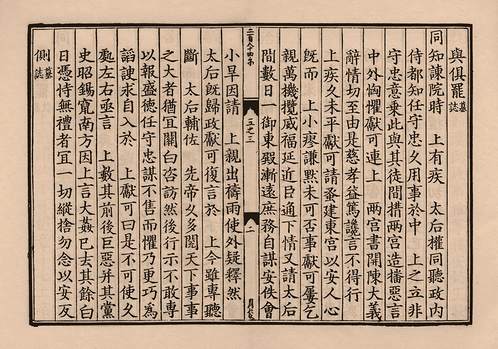 與俱罷墓誌
同知諫院時　上有疾　太后權同聽政內
侍都知任守忠久用事於中　上之立非
守忠意乘此與其徒間搆兩宮造播惡言
中外恟懼獻可連上　兩宮書開陳大義
辭情切至由是慈孝益篤讒言不得行
上疾久未平獻可請蚤建東宮以安人心
既而　上小瘳謙默未可否事獻可屢乞
親萬機攬威福延近臣通下情又請太后
間數日一御東殿漸遠庶務自謀安佚會
三之三
二
小旱因請　上親出禱雨使外疑釋然
太后既歸政獻可復言於　上今雖專聽
斷　太后輔佐　先帝久多閱天下事事
之大者猶宜關白咨訪然後行示不敢專
以報盛德任守忠謀不售而懼乃更巧為
諂諛求自入於　上獻可曰是不可使久
處左右亟言　上數其前後巨惡并其黨
史昭錫竄南方因上言大姦已去其餘白
日憑恃無禮者宜一切縱捨勿念以安反
側墓誌